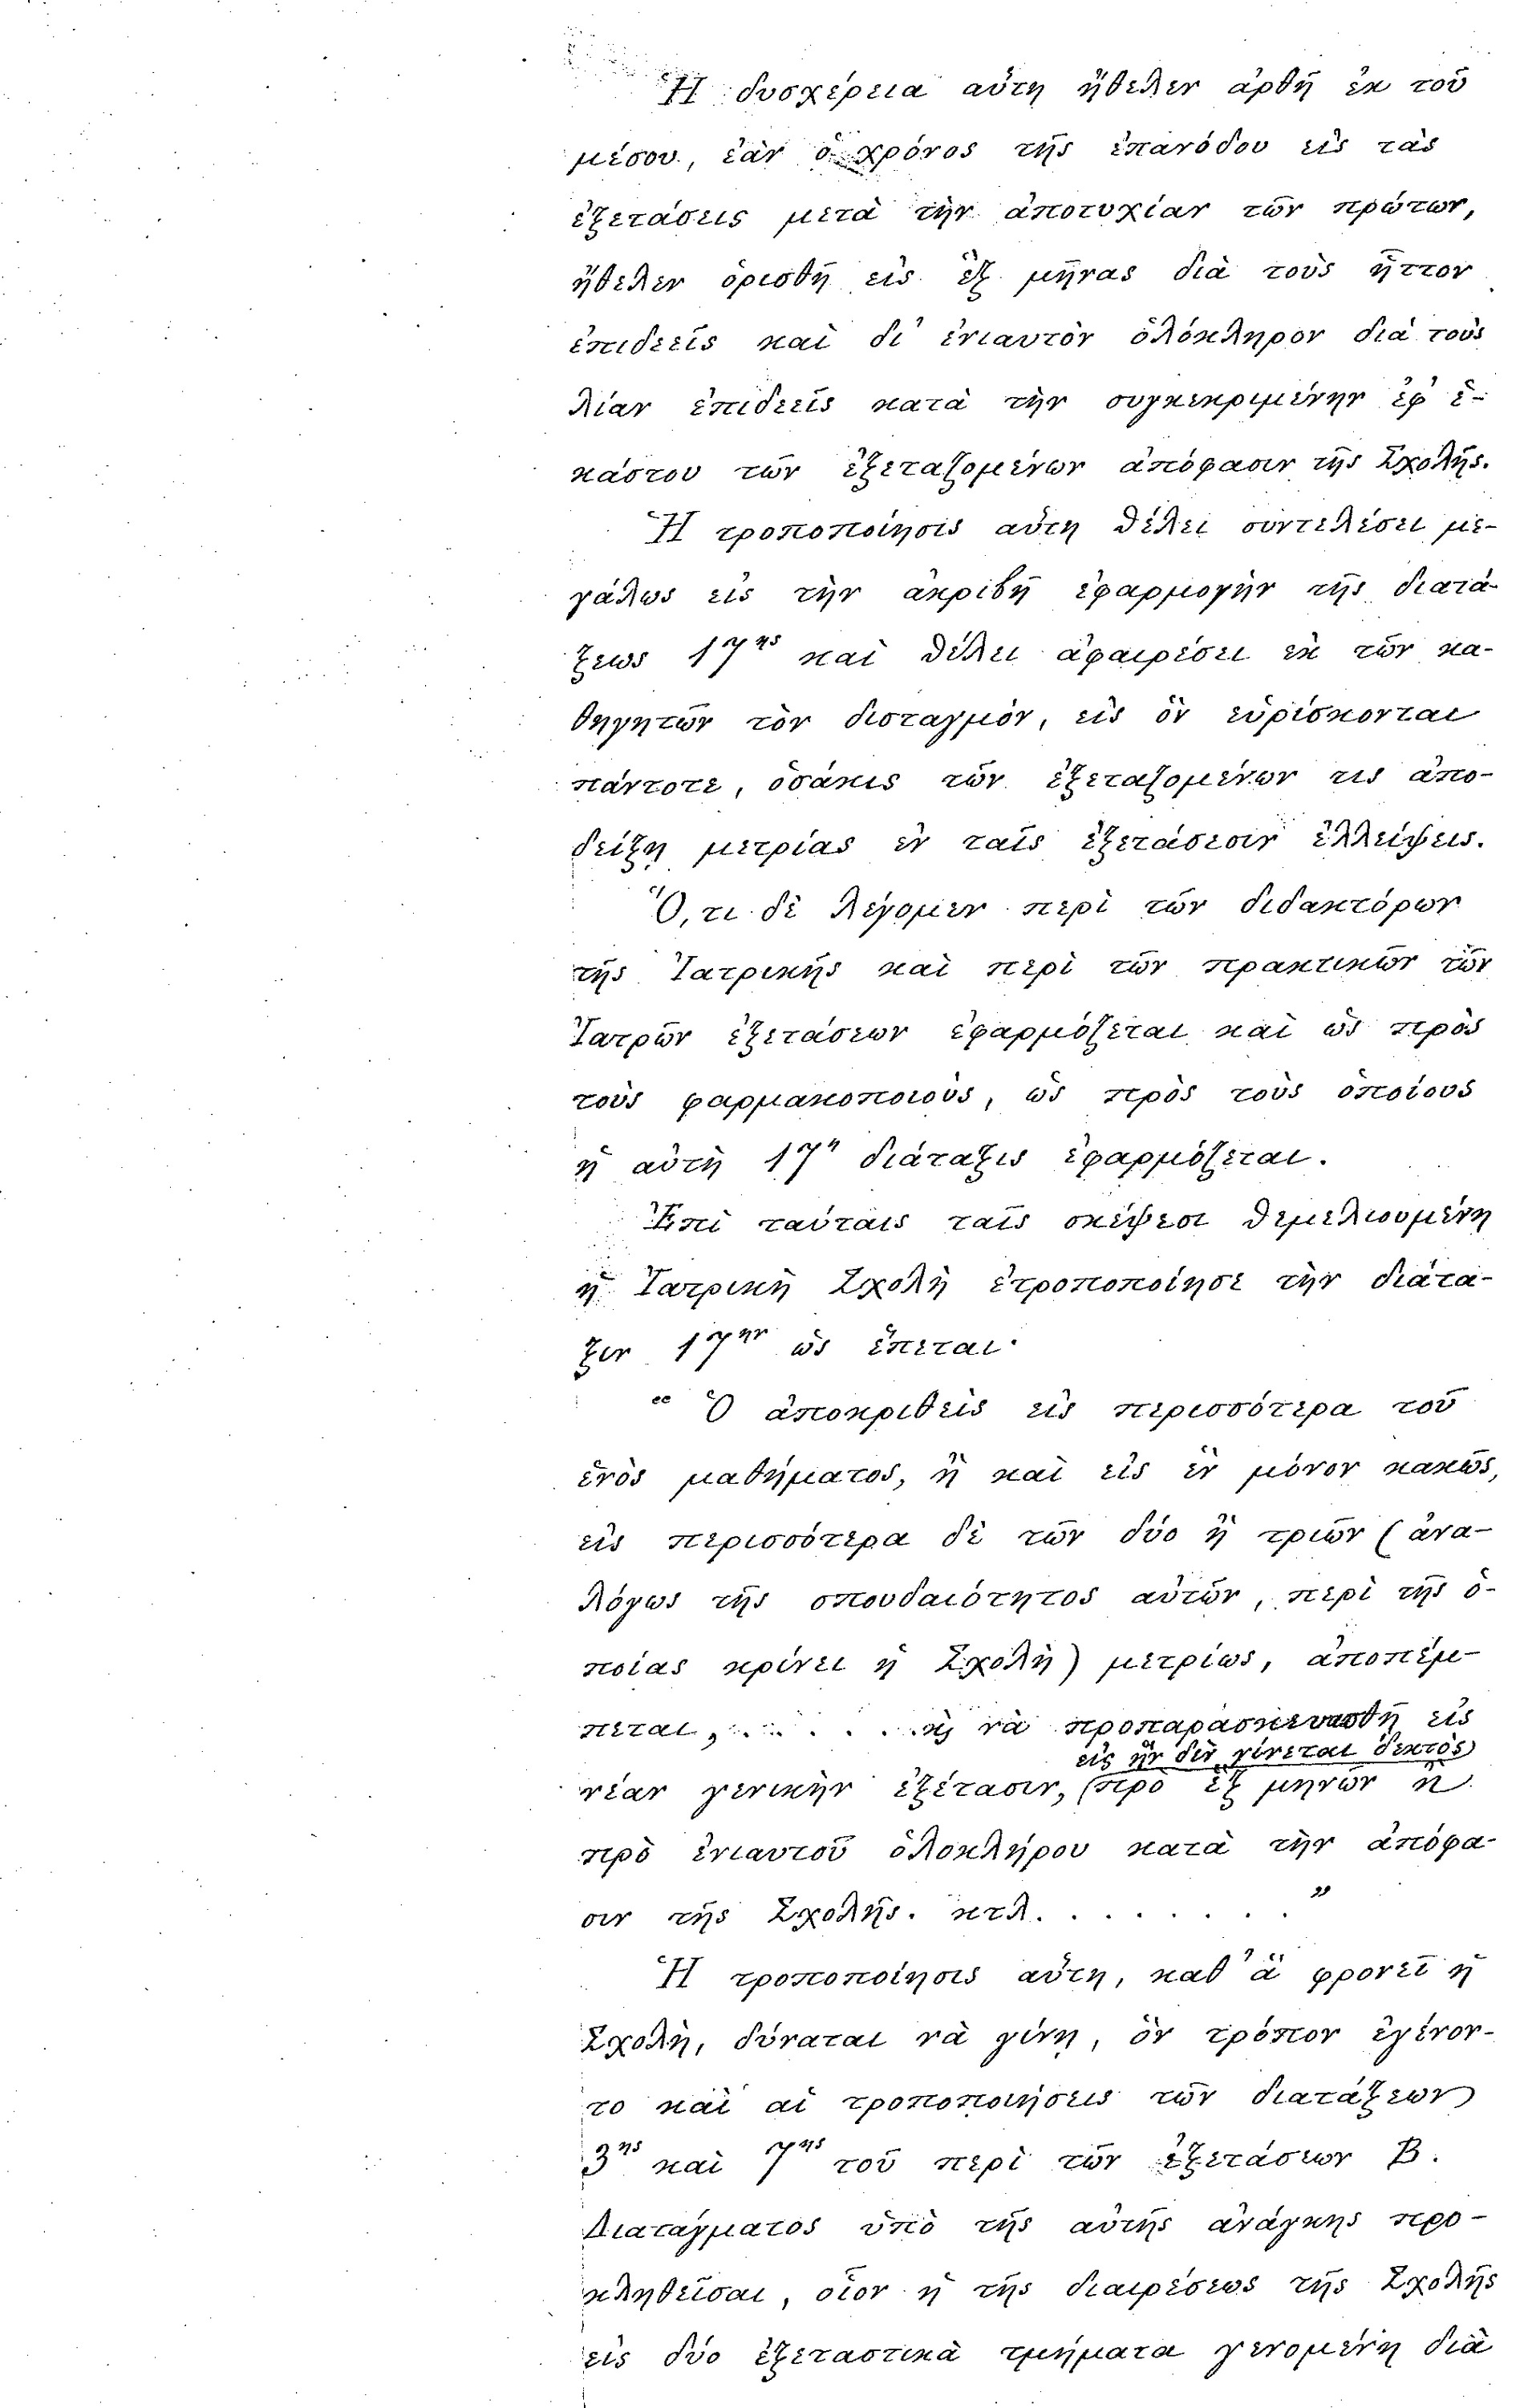 Ἡ δυσχέρεια αὕτη ἤθελεν ἀρθῆ ἐκ τοῦ
μέσου, ἐὰν ὁ χρόνος τῆς ἐπανόδου εἰς τὰς
ἐξετάσεις μετὰ τὴν ἀποτυχίαν τῶν πρώτων,
ἤθελεν ὁρισθῆ εἰς ἓξ μῆνας διὰ τοὺς ἧττον
ἐπιδεεῖς καὶ δι' ἐνιαυτὸν ὁλόκληρον διὰ τοὺς
λίαν ἐπιδεεῖς κατὰ τὴν συγκεκριμένην ἐφ' ἑ-
κάστου τῶν ἐξεταζομένων ἀπόφασιν τῆς Σχολῆς.
Ἡ τροποποίησις αὕτη θέλει συντελέσει με-
γάλως εἰς τὴν ἀκριβῆ ἐφαρμογὴν τῆς διατά-
ξεως 17ης καὶ θέλει ἀφαιρέσει ἐκ τῶν κα-
θηγητῶν τὸν δισταγμὸν, εἰς ὃν εὑρίσκονται
πάντοτε, ὁσάκις τῶν ἐξεταζομένων τις ἀπο-
δείξῃ μετρίας ἐν ταῖς ἐξετάσεσιν ἐλλείψεις.
Ὅ,τι δὲ λέγομεν περὶ τῶν διδακτόρων
τῆς Ἰατρικῆς καὶ περὶ τῶν πρακτικῶν τῶν
Ἰατρῶν ἐξετάσεων ἐφαρμόζεται καὶ ὡς πρὸς
τοὺς φαρμακοποιοὺς, ὡς πρὸς τοὺς ὁποίους
ἡ αὐτὴ 17η διάταξις ἐφαρμόζεται.
Ἐπὶ ταύταις ταῖς σκέψεσι θεμελιουμένη
ἡ Ἰατρικὴ Σχολὴ ἐτροποποίησε τὴν διάτα-
ξιν 17ην ὡς ἕπεται·
“ Ὁ ἀποκριθεὶς εἰς περισσότερα τοῦ
ἑνὸς μαθήματος, ἢ καὶ εἰς ἓν μόνον κακῶς,
εἰς περισσότερα δὲ τῶν δύο ἢ τριῶν (ἀνα-
λόγως τῆς σπουδαιότητος αὐτῶν, περὶ τῆς ὁ-
ποίας κρίνει ἡ Σχολὴ) μετρίως, ἀποπέμ-
πεται, . . . . . . νὰ προπαρασκευασθῆ εἰς
εἰς ἣν δὲν γίνεται δεκτὸς
νέαν γενικὴν ἐξέτασιν, (πρὸ ἓξ μηνῶν ἢ
πρὸ ἐνιαυτοῦ ὁλοκλήρου κατὰ τὴν ἀπόφα-
σιν τῆς Σχολῆς. κτλ. . . . . . . . ”
Ἡ τροποποίησις αὕτη, καθ' ἃ φρονεῖ ἡ
Σχολὴ, δύναται νὰ γίνῃ, ὃν τρόπον ἐγένον-
το καὶ αἱ τροποποιήσεις τῶν διατάξεων
3ης καὶ 7ης τοῦ περὶ τῶν ἐξετάσεων Β.
Διατάγματος ὑπὸ τῆς αὐτῆς ἀνάγκης προ-
κληθεῖσαι, οἷον ἡ τῆς διαιρέσεως τῆς Σχολῆς
εἰς δύο ἐξεταστικὰ τμήματα γενομένη διὰ